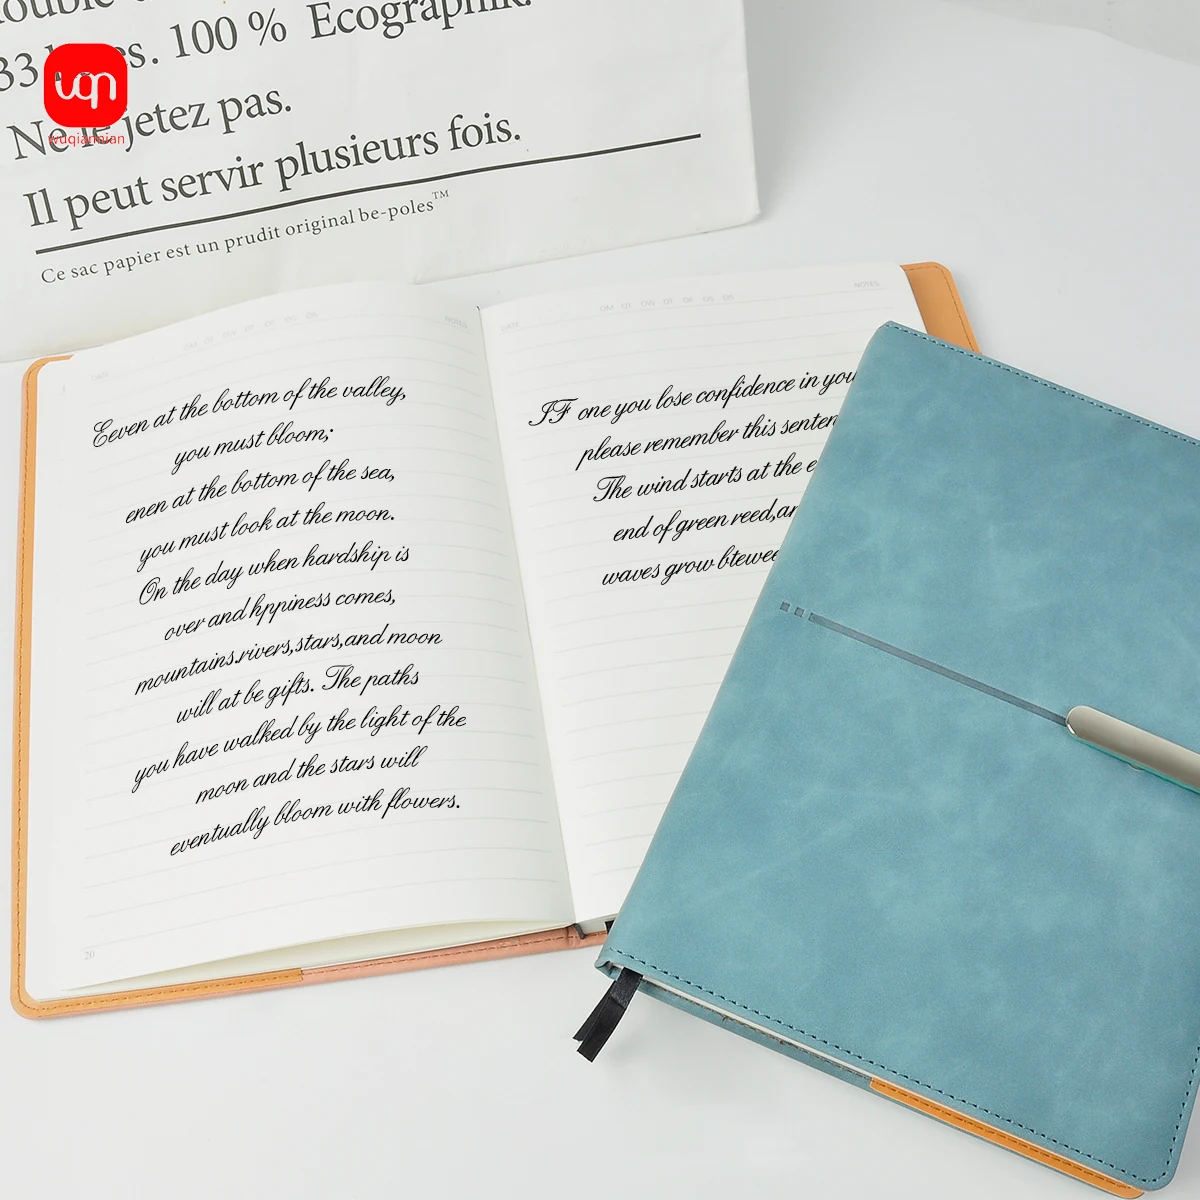 33 100 % Ecographik.
Ne le jetez pas.
Il peut servir plusieurs fois.
Ce sac papier est un prudit original be-poles™
uqn
wuqianmian
DATE
NOTES
Eeven at the bottom of the valley,
you must bloom;
enen at the bottom of the sea,
you must look at the moon.
On the day when hardship is
over and hppiness comes,
mountains.rivers,stars,and moon
will at be gifts. The paths
you have walked by the light of the
moon and the stars will
eventually bloom with flowers.
20
DATE
NOTES
IF one you lose confidence in you
please remember this senten
The wind starts at the e
end of green reed,an
waves grow btewee